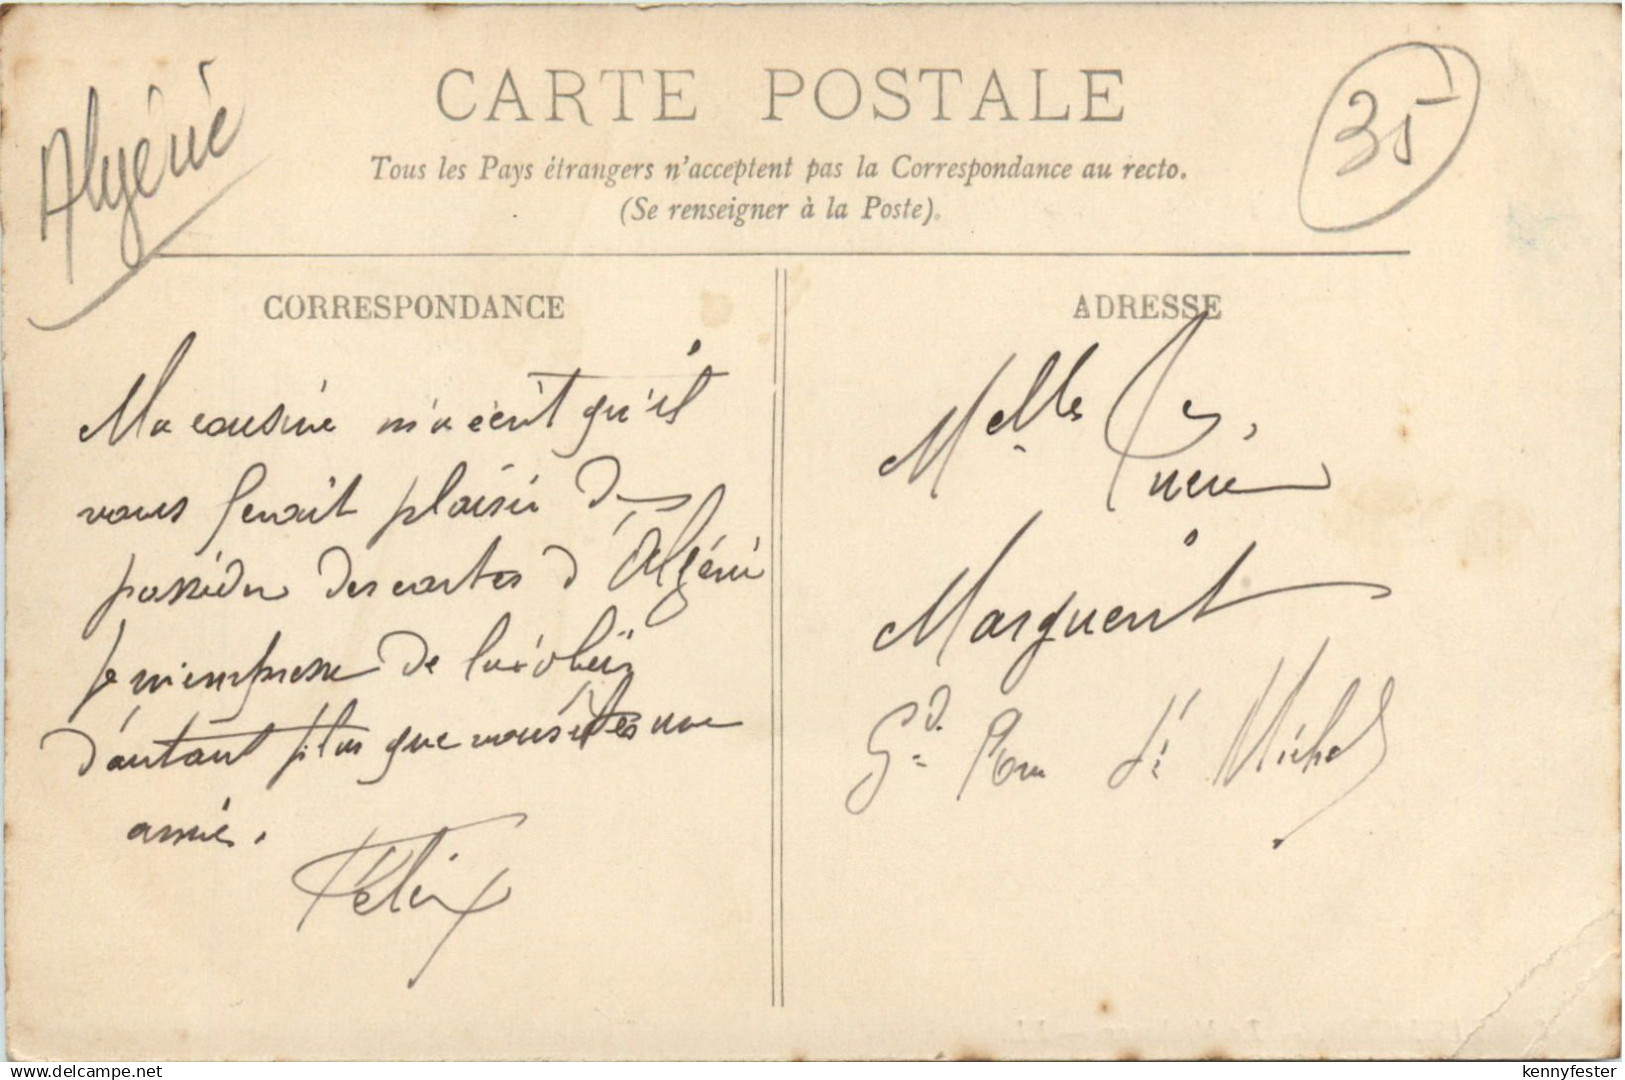 Algérie
CARTE POSTALE
35
Tous les Pays étrangers n'acceptent pas la Correspondance au recto.
(Se renseigner à la Poste).
CORRESPONDANCE
Ma cousine m'a écrit qu'il
vous ferait plaisir de
posséder des cartes d'Algérie
je m'empresse de lui obéir
d'autant plus que vous êtes une
amie.
Félix
ADRESSE
Melle Lucie
Marguerit
Gd Rue St Michel
kennyfester